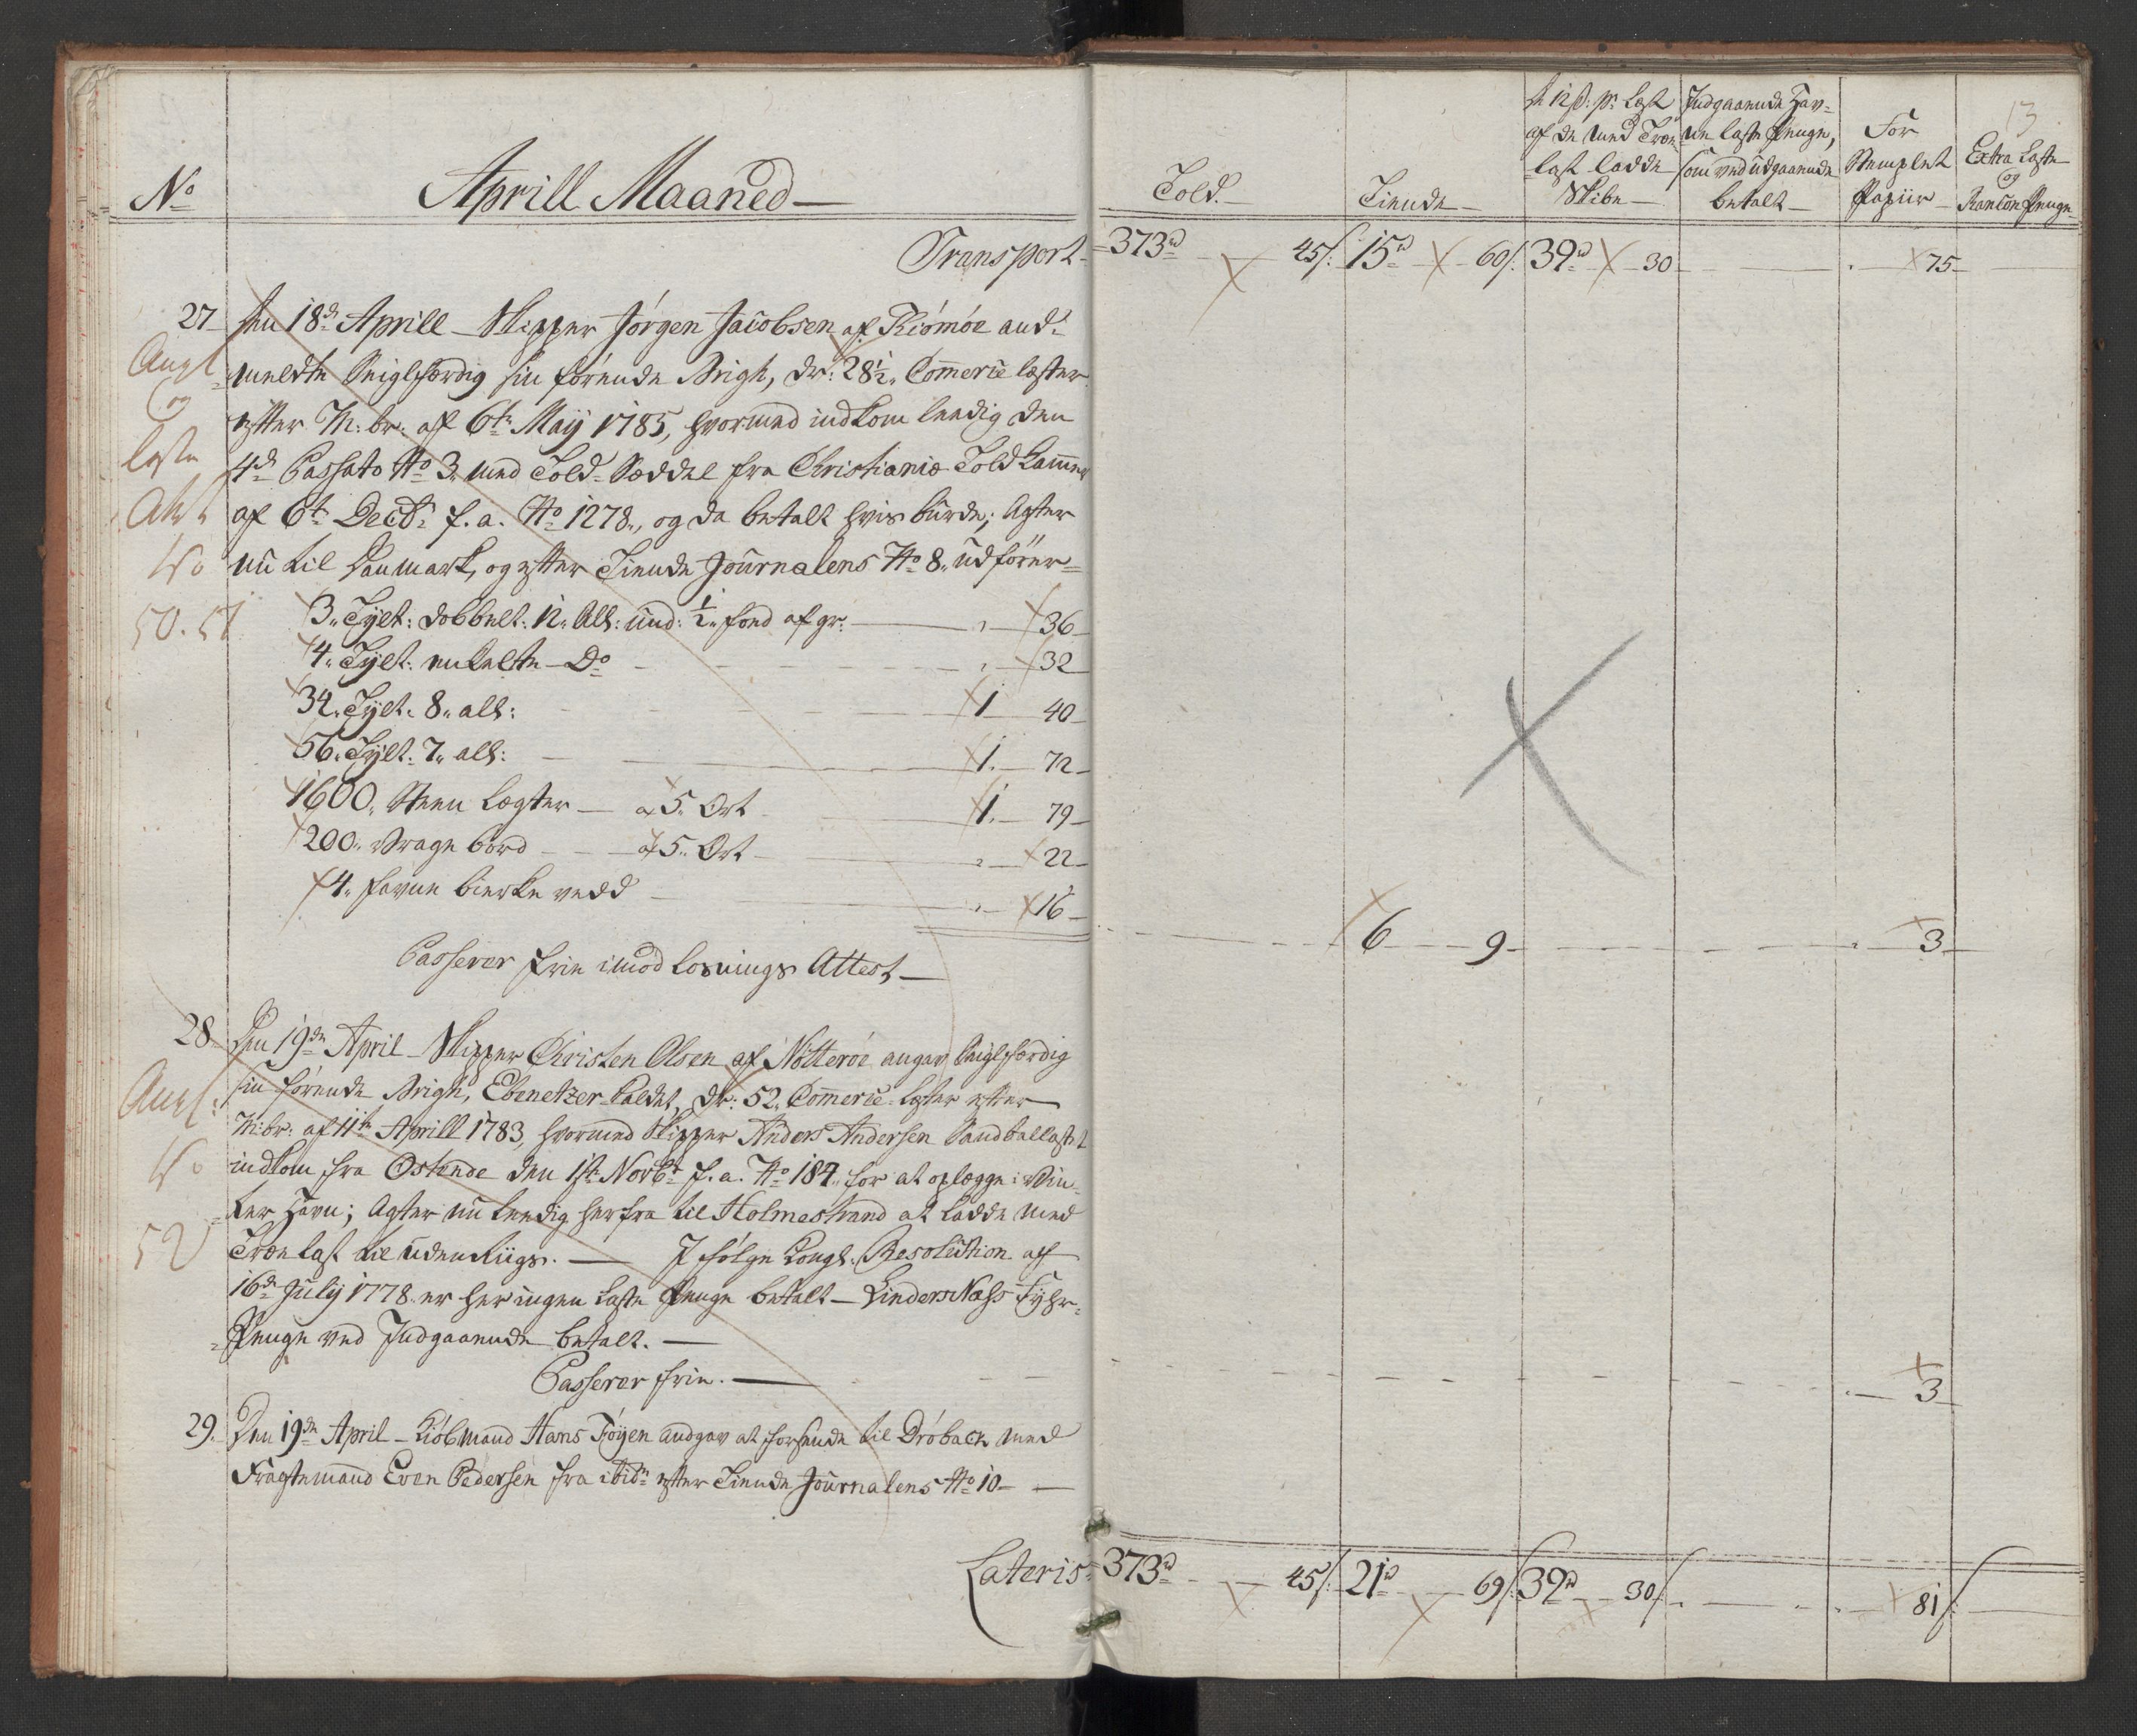 No
Aprill Maaned
Told.
Tiende
à 12 s: pr. Læst
af de med Træ¬
last ladde
Skibe
Indgaaende Hav¬
ne laste Penge,
som ved udgaaende
betalt
For
Stemplet
Papiir
13
Extra Laste
og
Rantzon Penge
Transport 373rd 45s: 15rd 60s: 39rd 30 " 75
27 Den 18de Aprill Skipper Jørgen Jacobsen af Kiømøe an¬
meldte Seiglfærdig sin førende Brigh, dr: 28½ Comercie læster
efter M:br: af 6te Maij 1785, hvormed indkom leedig den
4de Passato No 3 med Told-Seddel fra Christiania Told Kammer
af 6te Decbr: f. a. No 1278, og da betalt hvis burde; Agter
nu til Danmark, og efter Tiende Journalens No 8 udfører
Angl
og
laste
Att
No
50. 51
3 Tylt: dobbelt: 12 All: und: ½ fod af gr: " 36
4 Tylt: enkelte Do " 32
34 Tylt: 8 all: 1 40
56 Tylt: 7 all: 1 72
1600 Steen Lægter a 5 Ort 1 79
200 Vrage bord a 5 Ort " 22
4 favne bierke vedd " 16
6 9 " 3
Passerer frie imod losnings Attest
28 Den 19de April Skipper Christen Olsen af Nøtterøe angav Seiglfærdig
sin førende Brigh, Ebenetzer kaldet, dr: 52 Comercie læster efter
M:br: af 11te Aprill 1783, hvormed Skipper Anders Andersen Sandballastet
indkom fra Ostende den 1te Novbr: f. a. No 184 for at oplægge i Vin¬
ter Havn; Agter nu leedig herfra til Holmestrand at ladde med
Træelast til udenRiigs. I følge Kongl: Resolution af
16de July 1778 er her ingen Laste Penge betalt LindersNæss Fyhr¬
Penge ved Indgaaende betalt.
Angl:
No
52
Passerer frie. " 3
29. Den 19de April Kiøbmand Hans Føyen andgav at forsende til Drøback med
Fragtemand Even Pedersen fra ibidm efter Tiende Journalens No 10
Lateris 373rd 45s: 21rd 69s: 39rd 30s: " 81s: